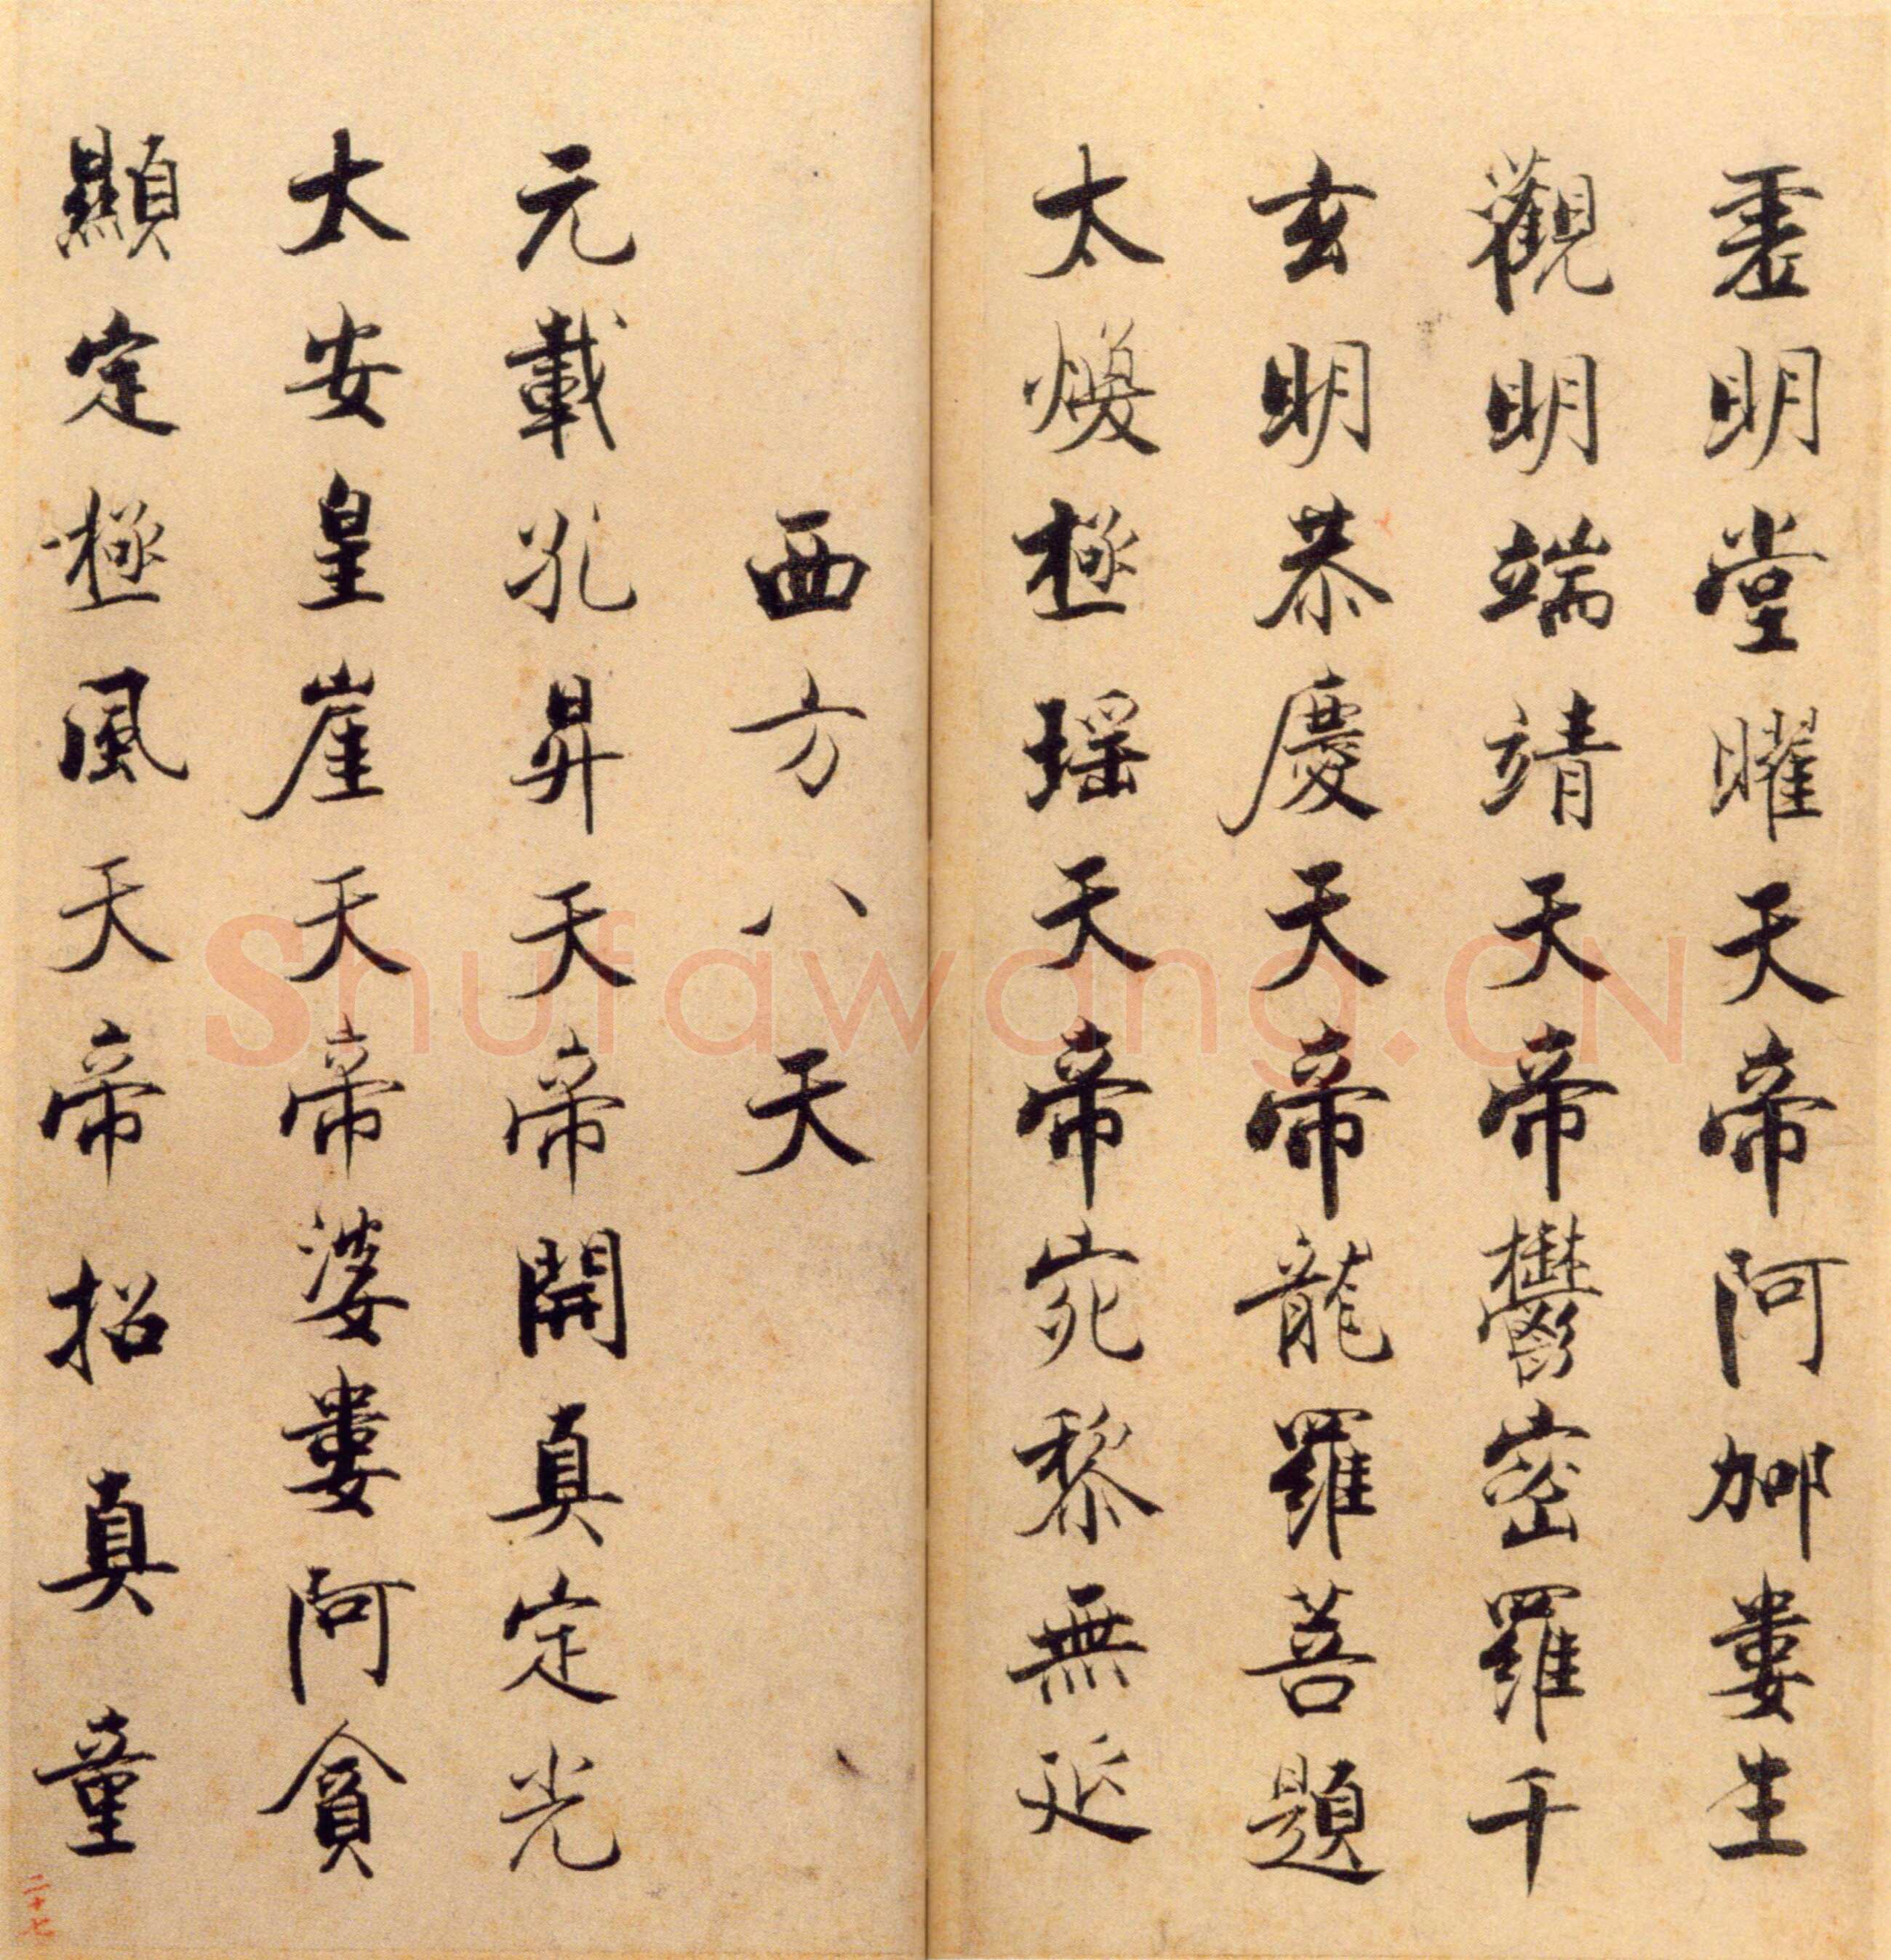 虛明堂曜天帝阿𨚗婁生
觀明端靖天帝鬱密羅千
玄明恭慶天帝龍羅菩題
太煥極瑶天帝宛黎無延
西方八天
元載孔昇天帝開真定光
太安皇崖天帝婆婁阿貪
顯定極風天帝招真童
二十七
Shufawang.CN